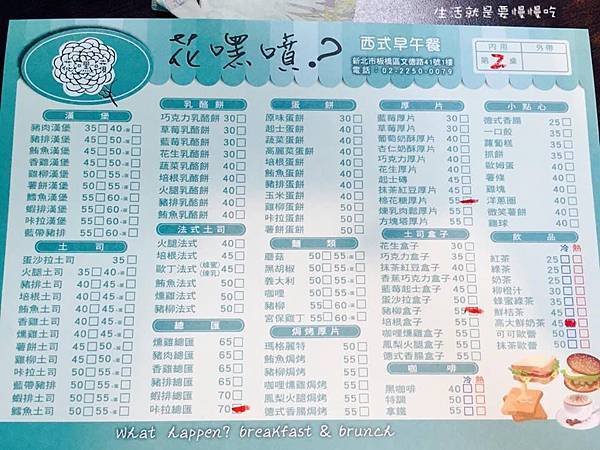 生活就是要慢慢吃
花嘿噴.?
西式早午餐
新北市板橋區文德路41號1樓
電話：02-2250-0079
內用 外帶
第2桌
漢堡
豬肉漢堡 35 40
豬排漢堡 45 50
蔬菜漢堡 45 50
鮪魚漢堡 45 50
香雞漢堡 45 50
雞柳漢堡 50 55
薯餅漢堡 50 55
鱈魚漢堡 50 55
蝦排漢堡 50 55
咔拉漢堡 50 55
藍帶豬排 50 55
土司
蛋沙拉土司 35
火腿土司 35 40
豬排土司 35 40
培根土司 35 40
鮪魚土司 40 45
香雞土司 40 45
燻雞土司 40 45
薯餅土司 40 45
雞柳土司 45 50
咔拉土司 45 50
藍帶豬排 50 55
蝦排土司 50 55
鱈魚土司 50 55
乳酪餅
巧克力乳酪餅 30
草莓乳酪餅 30
藍莓乳酪餅 30
花生乳酪餅 30
蔬菜乳酪餅
培根乳酪餅 40
火腿乳酪餅 40
豬排乳酪餅 40
鮪魚乳酪餅 40
法式土司
火腿法式 40
培根法式 45
歐丁法式(蜂蜜)(煉乳) 45
鮪魚法式 50
燻雞法式 50
豬柳法式 60
總匯
燻雞總匯 65
豬肉總匯 65
香雞總匯 65
豬排總匯 65
蝦排總匯 70
咔拉總匯 70
蛋餅
原味蛋餅
起士蛋餅
蔬菜蛋餅
高麗菜蛋餅
培根蛋餅
鮪魚蛋餅
豬排蛋餅
玉米蛋餅
雞柳蛋餅
咔拉蛋餅
薯餅蛋餅
麵類
蘑菇 50
黑胡椒 50
義大利 50
咖哩 50
豬柳 55
宮保雞丁 60
焗烤厚片
瑪格麗特 50
鮪魚焗烤 55
豬柳焗烤 55
咖哩燻雞焗烤 55
鳳梨火腿焗烤 55
德式香腸焗烤 55
厚片
藍莓厚片 30
草莓厚片 30
葡萄奶酥厚片
杏仁奶酥厚片
巧克力厚片
花生厚片
起士磚 45
抹茶紅豆厚片 45
棉花糖厚片 55
煉乳肉鬆厚片 55
方塊塔厚片 55
土司盒子
花生盒子
巧克力盒子
抹茶紅豆盒子
香蕉巧克力盒子
藍莓起士盒子
蛋沙拉盒子
豬柳盒子
培根盒子
咖哩燻雞盒子
鳳梨火腿盒子
德式香腸盒子
咖啡 冷 熱
黑咖啡 40
特調 50
拿鐵 55
小點心
德式香腸 25
一口餃
蘿蔔糕
抓餅
歐姆蛋
薯條
雞塊
洋蔥圈
微笑薯餅
雞球
飲品
冷 熱
紅茶 25
綠茶 25
奶茶
柳橙汁
蜂蜜綠茶 35
鮮桔茶 45
高大鮮奶茶 45
可可歐蕾
抹茶歐蕾 50
What happen? breakfast & brunch